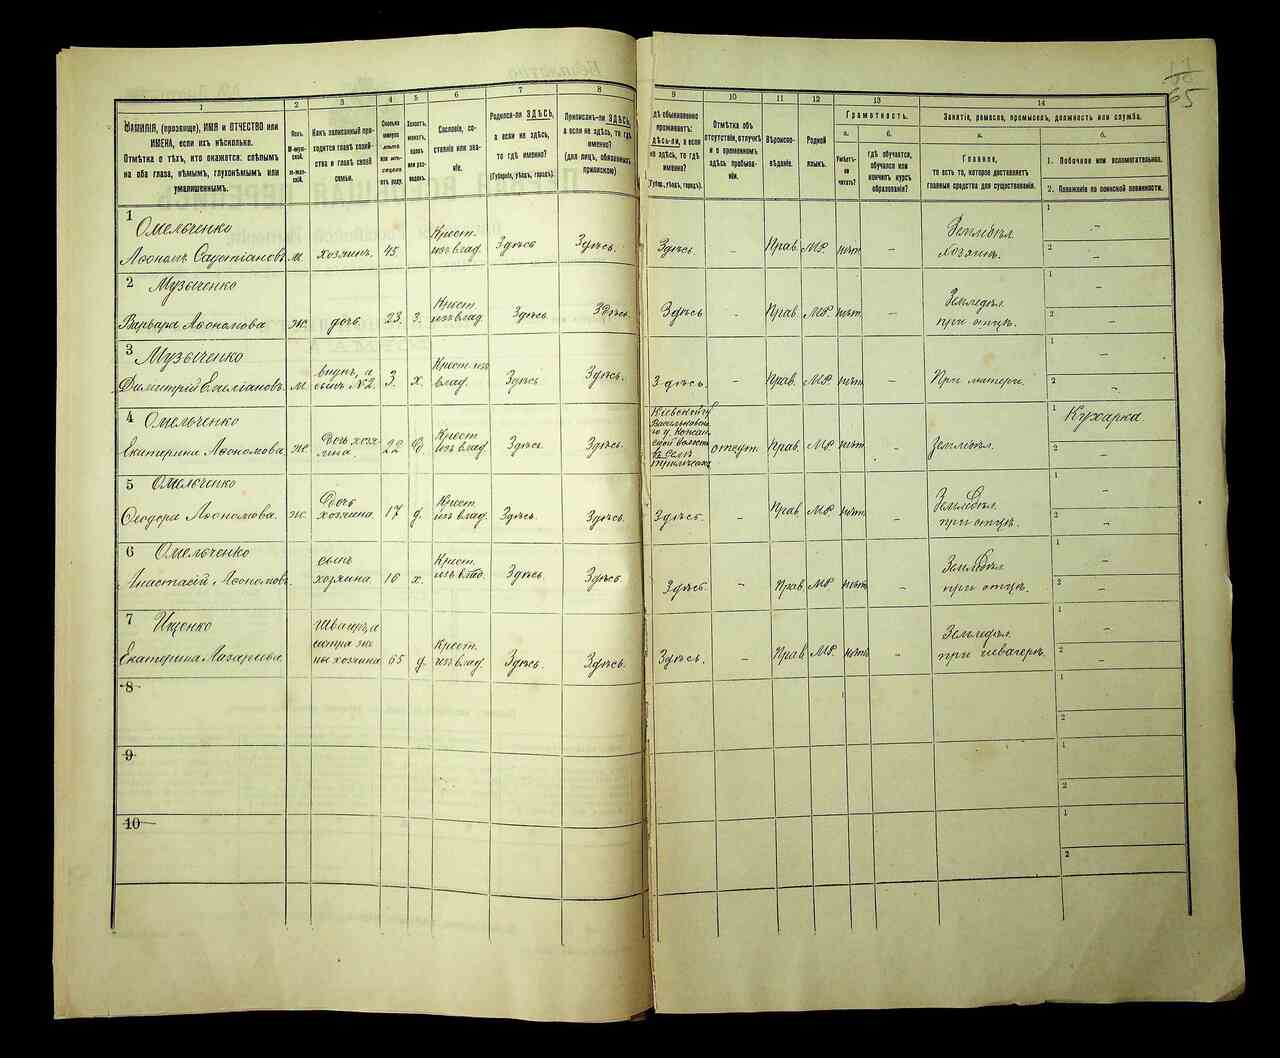 65
1
2
3
4
5
6
7
8
9
10
11
12
13
14
ФАМИЛІЯ, (прозвище), ИМЯ и ОТЧЕСТВО или
ИМЕНА, если ихъ нѣсколько.
Отмѣтка о тѣхъ, кто окажется: слѣпымъ
на оба глаза, нѣмымъ, глухонѣмымъ или
умалишеннымъ.
Полъ.
М-муж-
ской.
Ж-жен-
скій.
Какъ записанный при-
ходится главѣ хозяй-
ства и главѣ своей
семьи.
Сколько
минуло
лѣтъ
или мѣ-
сяцевъ
отъ роду.
Холостъ,
женатъ,
вдовъ
или раз-
веденъ.
Сословіе, со-
стояніе или зва-
ніе.
Родился-ли ЗДѢСЬ,
а если не здѣсь,
то гдѣ именно?
(Губернія, уѣздъ, городъ).
Приписанъ-ли ЗДѢСЬ,
а если не здѣсь, то гдѣ
именно?
(для лицъ, обязанныхъ
припискою)
Гдѣ обыкновенно
проживаетъ:
здѣсь-ли, а если
не здѣсь, то гдѣ
именно?
(Губер., уѣздъ, городъ).
Отмѣтка объ
отсутствіи, отлучкѣ
и о временномъ
здѣсь пребыва-
ніи.
Вѣроиспо-
вѣданіе.
Родной
языкъ.
Грамотность.
а.
б.
Умѣетъ-
ли
читать?
гдѣ обучается,
обучался или
кончилъ курсъ
образованія?
Занятіе, ремесло, промыселъ, должность или служба.
а.
б.
Главное,
то есть то, которое доставляетъ
главныя средства для существованія.
1. Побочное или вспомогательное.
2. Положеніе по воинской повинности.
1
Омельченко
м.
хозяинъ.
45.
Крест.
изъ влад.
Здѣсь
Здѣсь.
Здѣсь.
-
Прав.
МР.
нѣт
-
Земледѣл.
хозяинъ.
1 -
2 -
2
Музыченко
Варвара Афономова
ж.
дочь.
23.
Крест.
изъ влад
Здѣсь.
Здѣсь.
Здѣсь
-
Прав.
МР.
нѣт.
-
Земледѣл.
при отцѣ.
1 -
2 -
3
Музыченко
Димитрій Емиліановъ.
м.
внукъ, а
сынъ №2.
3.
х.
Крест. изъ
влад.
Здѣсь
Здѣсь.
Здѣсь.
-
Прав.
МР.
нѣт
-
При матери.
1 -
2 -
4
Омельченко
Екатерина Афономова.
ж.
Дочь хозя-
ина.
22
д.
Крест
изъ влад.
Здѣсь.
Здѣсь.
Кіевской г.
Васильковска-
го у.
въ селѣ
отсут.
Прав.
МР
нѣт
-
Земледѣл.
1 Кухарка
2 -
5
Омельченко
Ѳеодора Афономова.
ж.
Дочь
хозяина.
17
д.
Крест.
изъ влад.
Здѣсь.
Здѣсь.
Здѣсь.
-
Прав
МР
нѣт.
-
Земледѣл.
при отцѣ.
1 -
2 -
6
Омельченко
Анастасій Афономовъ.
сынъ
хозяина.
10
х.
Крест.
изъ влад.
Здѣсь.
Здѣсь.
Здѣсь.
-
Прав
МР.
нѣт
-
Земледѣл
при отцѣ.
1 -
2 -
7
Ищенко
Екатерина Лазарьева.
65
д.
Крест.
изъ влад.
Здѣсь.
Здѣсь.
Здѣсь.
-
Прав.
МР.
нѣт
-
Земледѣл.
при шевагерѣ.
1 -
2 -
8
1
2
9
1
2
10
1
2